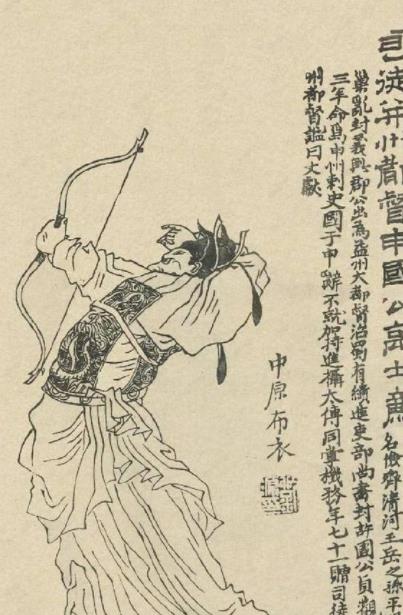 司徒并州都督申國公高士廉名儉齊清河王岳之孫平
巢亂封義興郡公出為益州大都督治蜀有績進吏部尚書封許國公貞觀
三年命爲申州刺史國于申辭不就加特進攝太傅同掌機務年七十一贈司徒
州都督諡曰文獻
中原布衣